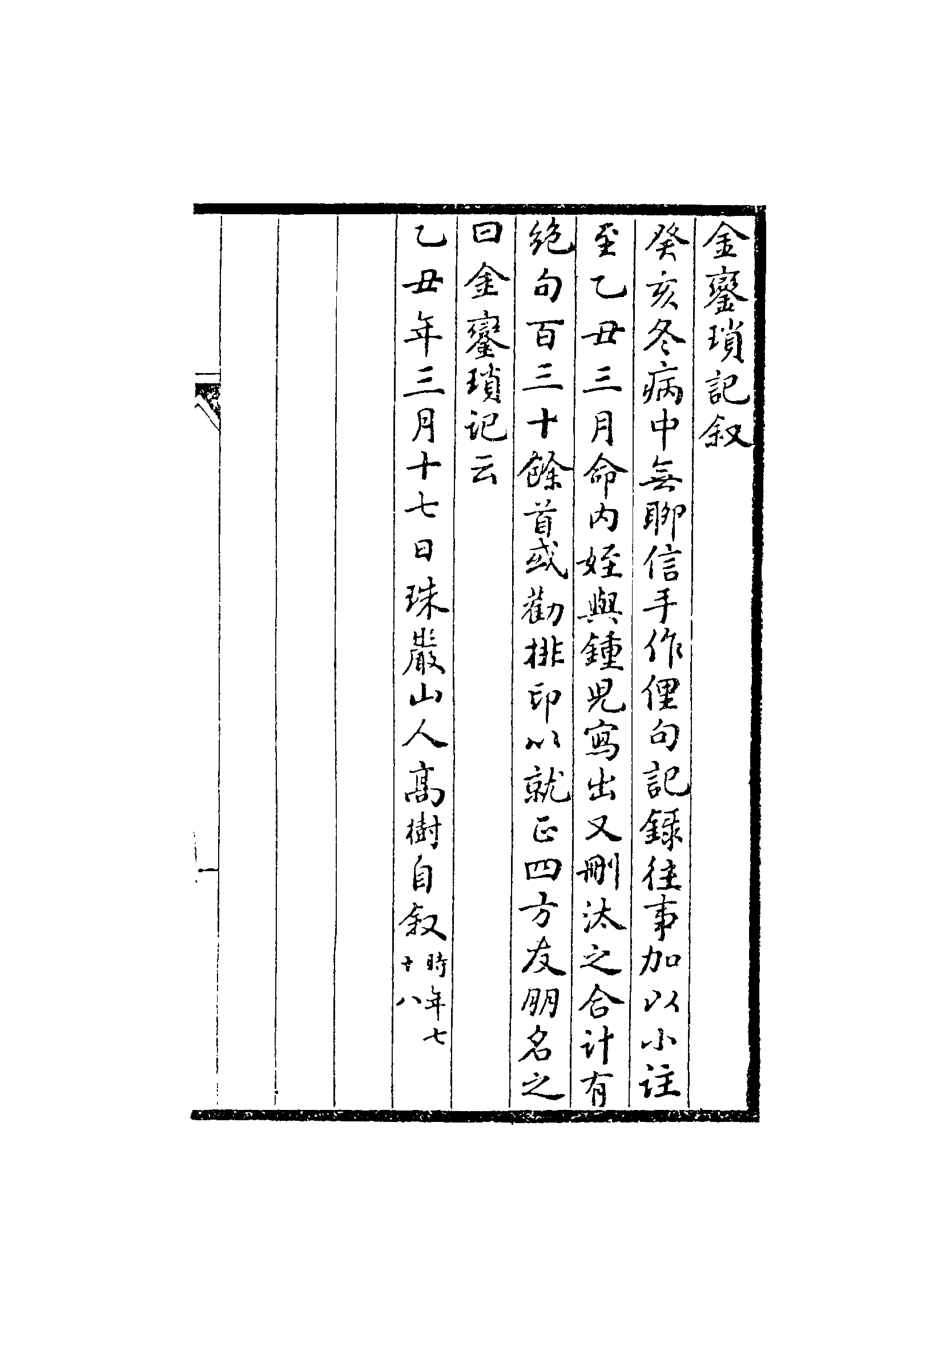 金鑾瑣記叙
癸亥冬病中無聊信手作俚句記錄往事加以小註
至乙丑三月命内姪與鍾児寫出又刪汰之合計有
絶句百三十餘首或勸排印以就正四方友朋名之
曰金鑾瑣记云
乙丑年三月十七日珠巖山人髙樹自叙時年七十八
一